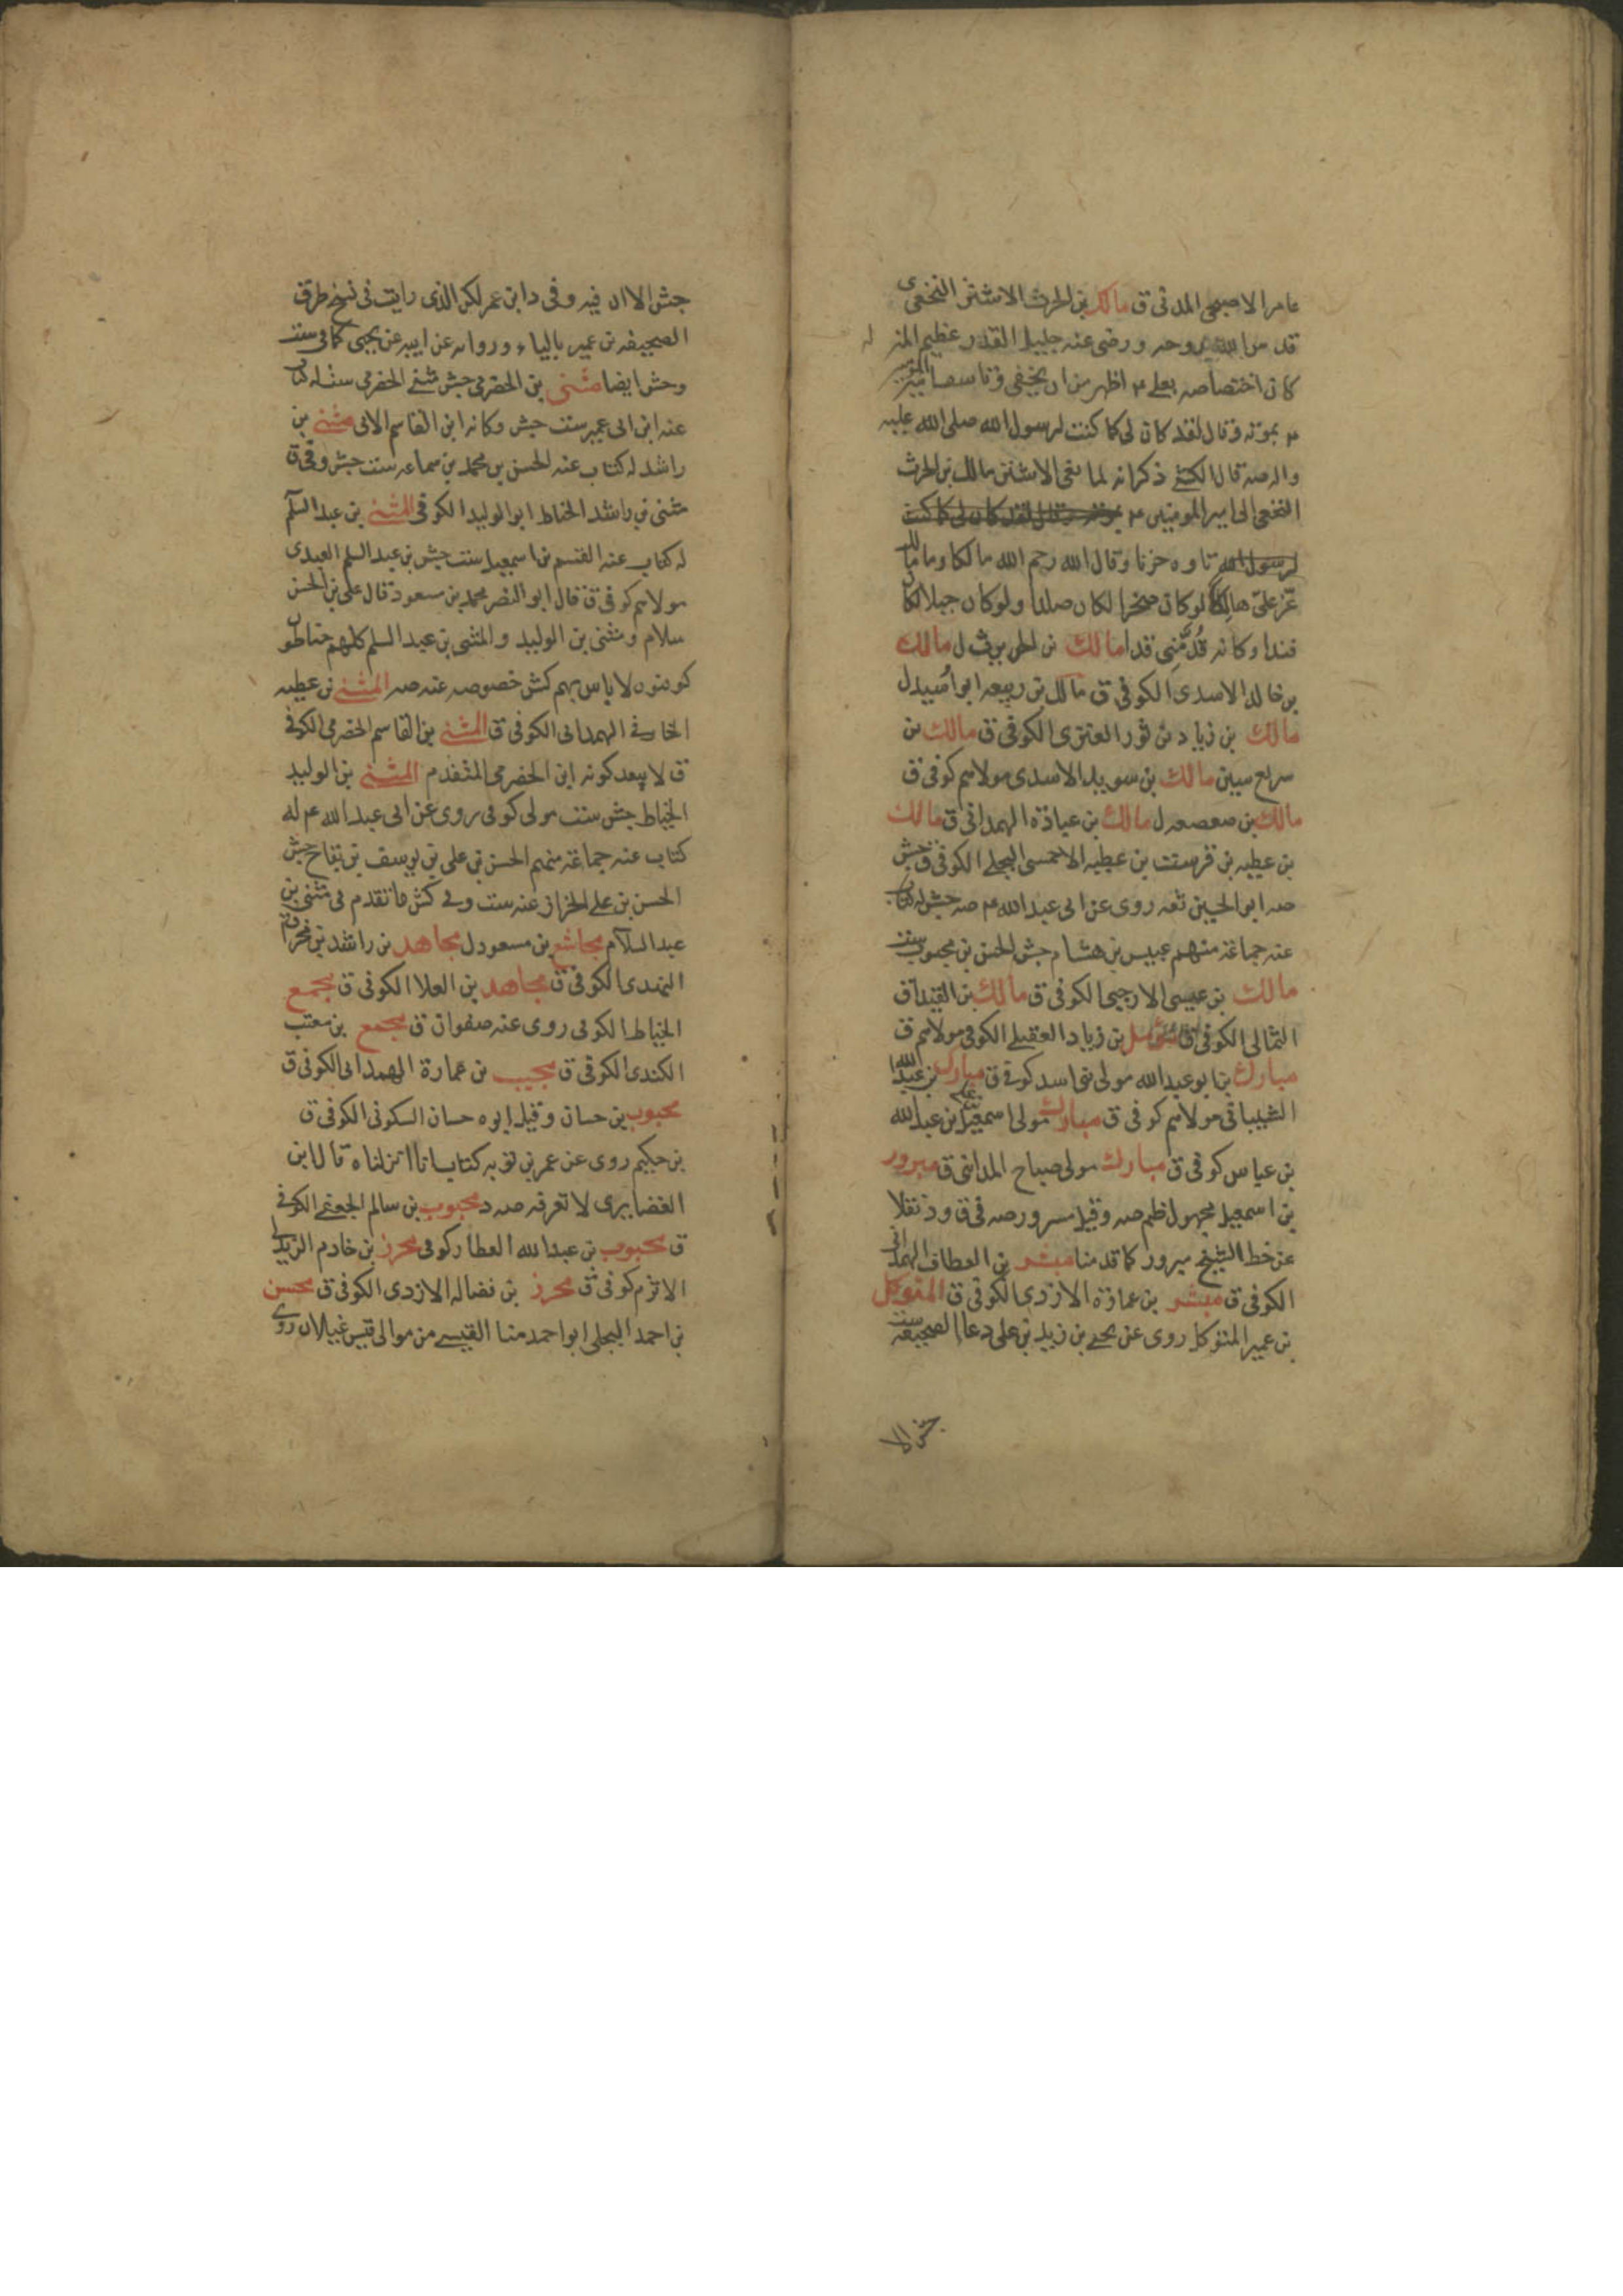 عامر الاصبحى المدنى ق مالك بن الحرث الاشتر النخعى
قدس الله روحه ورضى عنه جليل القدر عظيم المنز له
كان اختصاصه بعلى ء اظهر من ان يخفى وتاسف امير المؤمنين
ء بموته وقال لقد كان لى كما كنت لرسول الله صلى الله عليه
واله صه قال الكشى ذكر انه لما نعى الاشتر مالك بن الحرث
النخعى الى امير المومنين ء بموته وقال لقد كان لى كما كنت
لرسول الله تاوه حزنا وقال الله رحم الله مالكا وما مالك
عز علىّ هالكا لو كان صخرا لكان صلدا ولو كان جبلا لكان
فندا وكانه قُدَّ منى قدا مالك بن ل مالك
بن خالد الاسدى الكوفى ق مالك بن ربيعه ابو اُسيد ل
مالك بن زياد بن ثور العنزى الكوفى ق مالك بن
سريع سين مالك بن سويد الاسدى مولاهم كوفى ق
مالك بن صعصعه ل مالك بن عبادة الهمدانى ق مالك
بن عطيه بن عطيه الاحمسى البجلى الكوفى ق جش
صه ابو الحسين ثقه روى عن ابى عبد الله ء صه جش له كتاب
عنه جماعة منهم عبيس بن هشام جش الحسن بن محبوب ست
مالك بن عيسى الارحبى الكوفى ق مالك بن ق
الثمالى الكوفى ق بن زياد العقيلى الكوفى مولاهم ق
مبارك بن ابو عبد الله مولى بنى اسد كوفى ق مبارك بن عبد الله
الشيبانى مولاهم كوفى ق مبارك مولى اسمعيل بن على بن عبد الله
بن عباس كوفى ق مبارك مولى صباح المداينى ق مبرور
بن اسمعيل مجهول ظم صه وقيل مسرور صه فى ق ود نقلا
عن خط الشيخ مبرور كما قدمنا مبشر بن العطاف الهمدانى
الكوفى ق مبشر بن عمارة الازدى الكوفى ق المتوكل
بن عمير المتوكل روى عن يحيى بن زيد بن على دعا الصحيفه ست
جش الا
جش الا ان فيه وفى د ابن عمر لكن الذى رايت فى نسخ طرق
الصحيفه بن عمير بالياء ورواه عن ابيه عن يحيى كما فى ست
وجش ايضا مثنى بن الحضرمى جش مثنى الحضرمى ست له كتاب
عنه ابن ابى عمير ست جش وكانه ابن القاسم الاتى مثنى بن
راشد له كتاب عنه الحسن بن محمد بن سماعه ست جش وفى ق
مثنى بن راشد الحناط ابو الوليد الكوفى المثنى بن عبد السلم
له كتاب عنه القسم بن اسمعيل ست جش بن عبد السلم العبدى
مولاهم كوفى ق قال ابو النضر محمد بن مسعود قال على بن الحسن
سلام ومثنى بن الوليد والمثنى بن عبد السلم كلهم حناطون
كوفيون لا باس بهم كش خصوصه عنه صه المثنى بن عطيه
الخارفى الهمدانى الكوفى ق المثنى بن القاسم الحضرمى الكوفى
ق لا يبعد كونه ابن الحضرمى المتقدم المثنى بن الوليد
الحناط جش ست مولى كوفى روى عن ابى عبد الله ء له
كتاب عنه جماعة منهم الحسن بن على بن يوسف بن بقاح جش
الحسن بن على الخزاز عنه ست وفى كش ما تقدم فى مثنى بن
عبد السلام مجاشع بن مسعود ل مجاهد بن راشد بن
النهدى الكوفى ق مجاهد بن العلا الكوفى ق مجمع
الحناط الكوفى روى عنه صفوان ق مجمع بن معتب
الكندى الكوفى ق مجيب بن عمارة الهمدانى الكوفى ق
محبوب بن حسان وقيل ابوه حسان السكونى الكوفى ق
بن حكيم روى عن عمر بن توبه كتاب انا انزلناه قال ابن
الغضايرى لا نعرفه صه د محبوب بن سالم الجعفى الكوفى
ق محبوب بن عبد الله العطار كوفى محرز بن خادم الزيدى
الاثرم كوفى ق محرز بن فضاله الازدى الكوفى ق محسن
بن احمد البجلى ابو احمد منا القيسى من موالى قيس غيلان روى